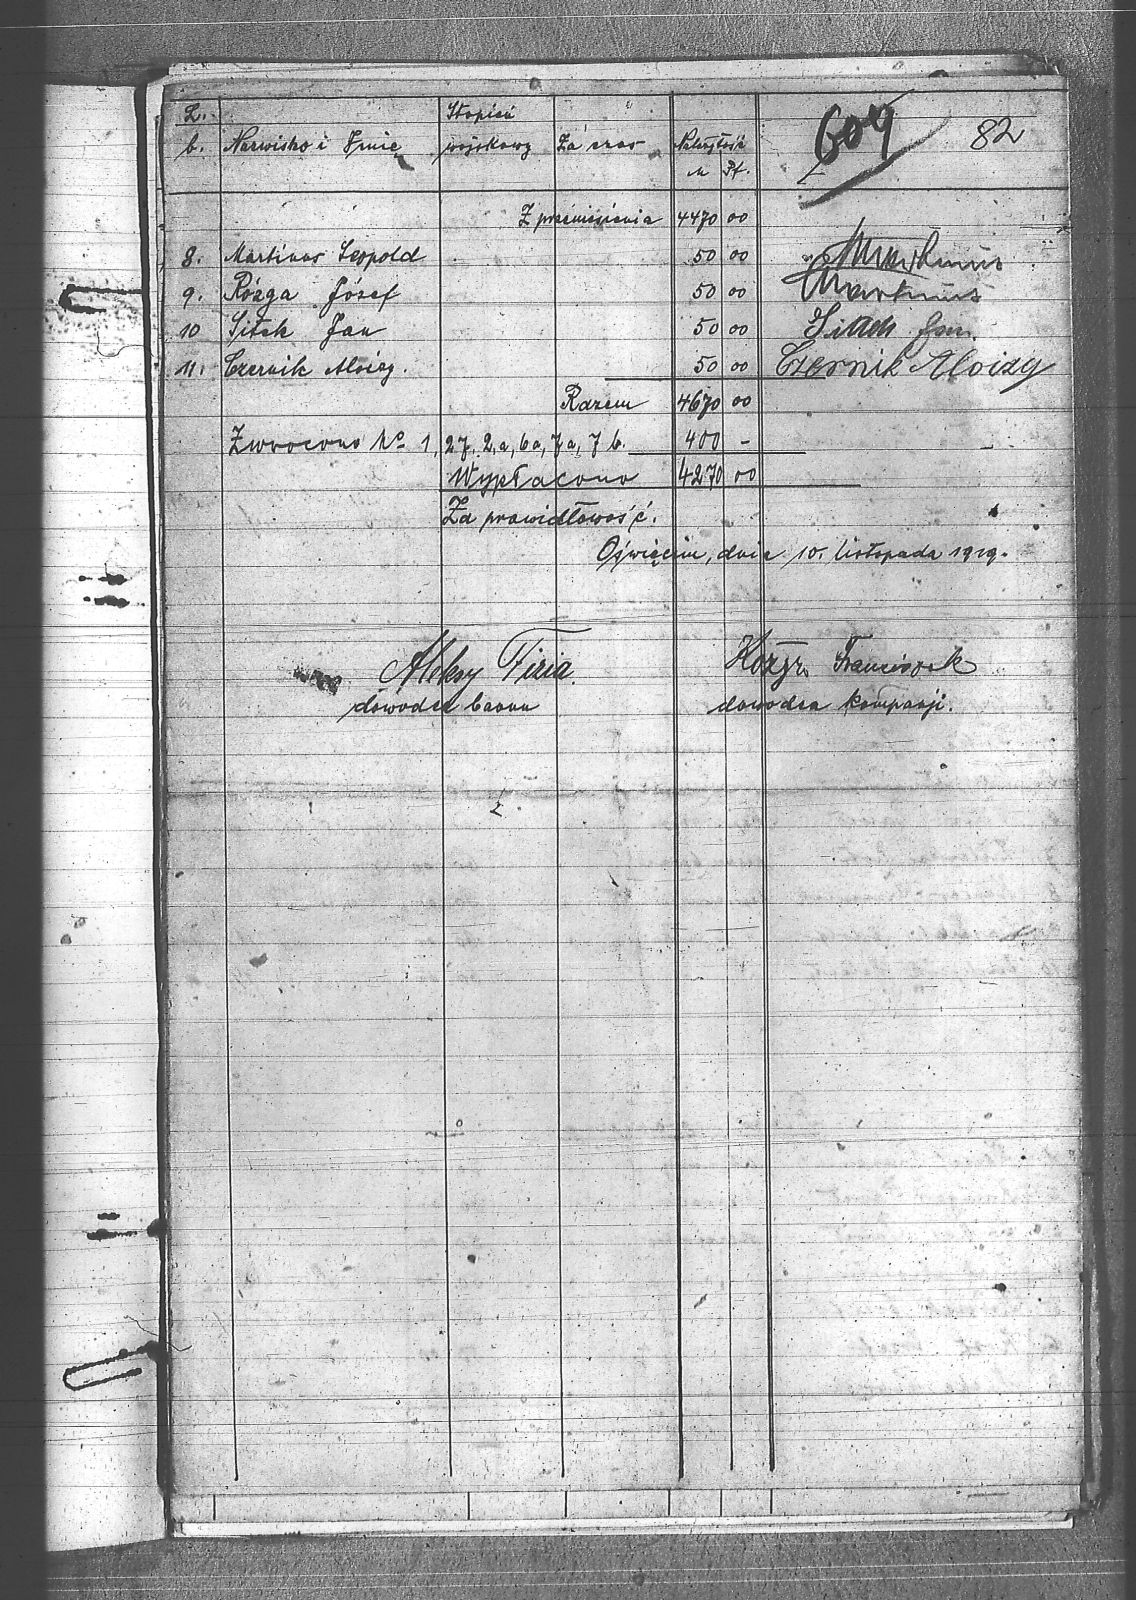 L. Stopień 604 82
b. Nazwisko i Imię wojskowy Za czas Należytość
M Pf.
Z przeniesienia 4470 00
8. Martinus Leopold 50 00 Martinus
9. Rózga Józef 50 00 Martinus
10 Sitek Jan 50 00 Sitek Jan.
11. Czernik Aloizy. 50 00 Czernik Aloizy
Razem 4670 00
Zwrocono No 1, 27, 2,a, 6a, 7a, 7b. 400 -
Wypłacono 4270 00
Za prawidłowość.
Oświęcim, dnia 10. listopada 1919.
Aleksy Fizia. Franciszek
dowodca baonu dowodca kompanji.